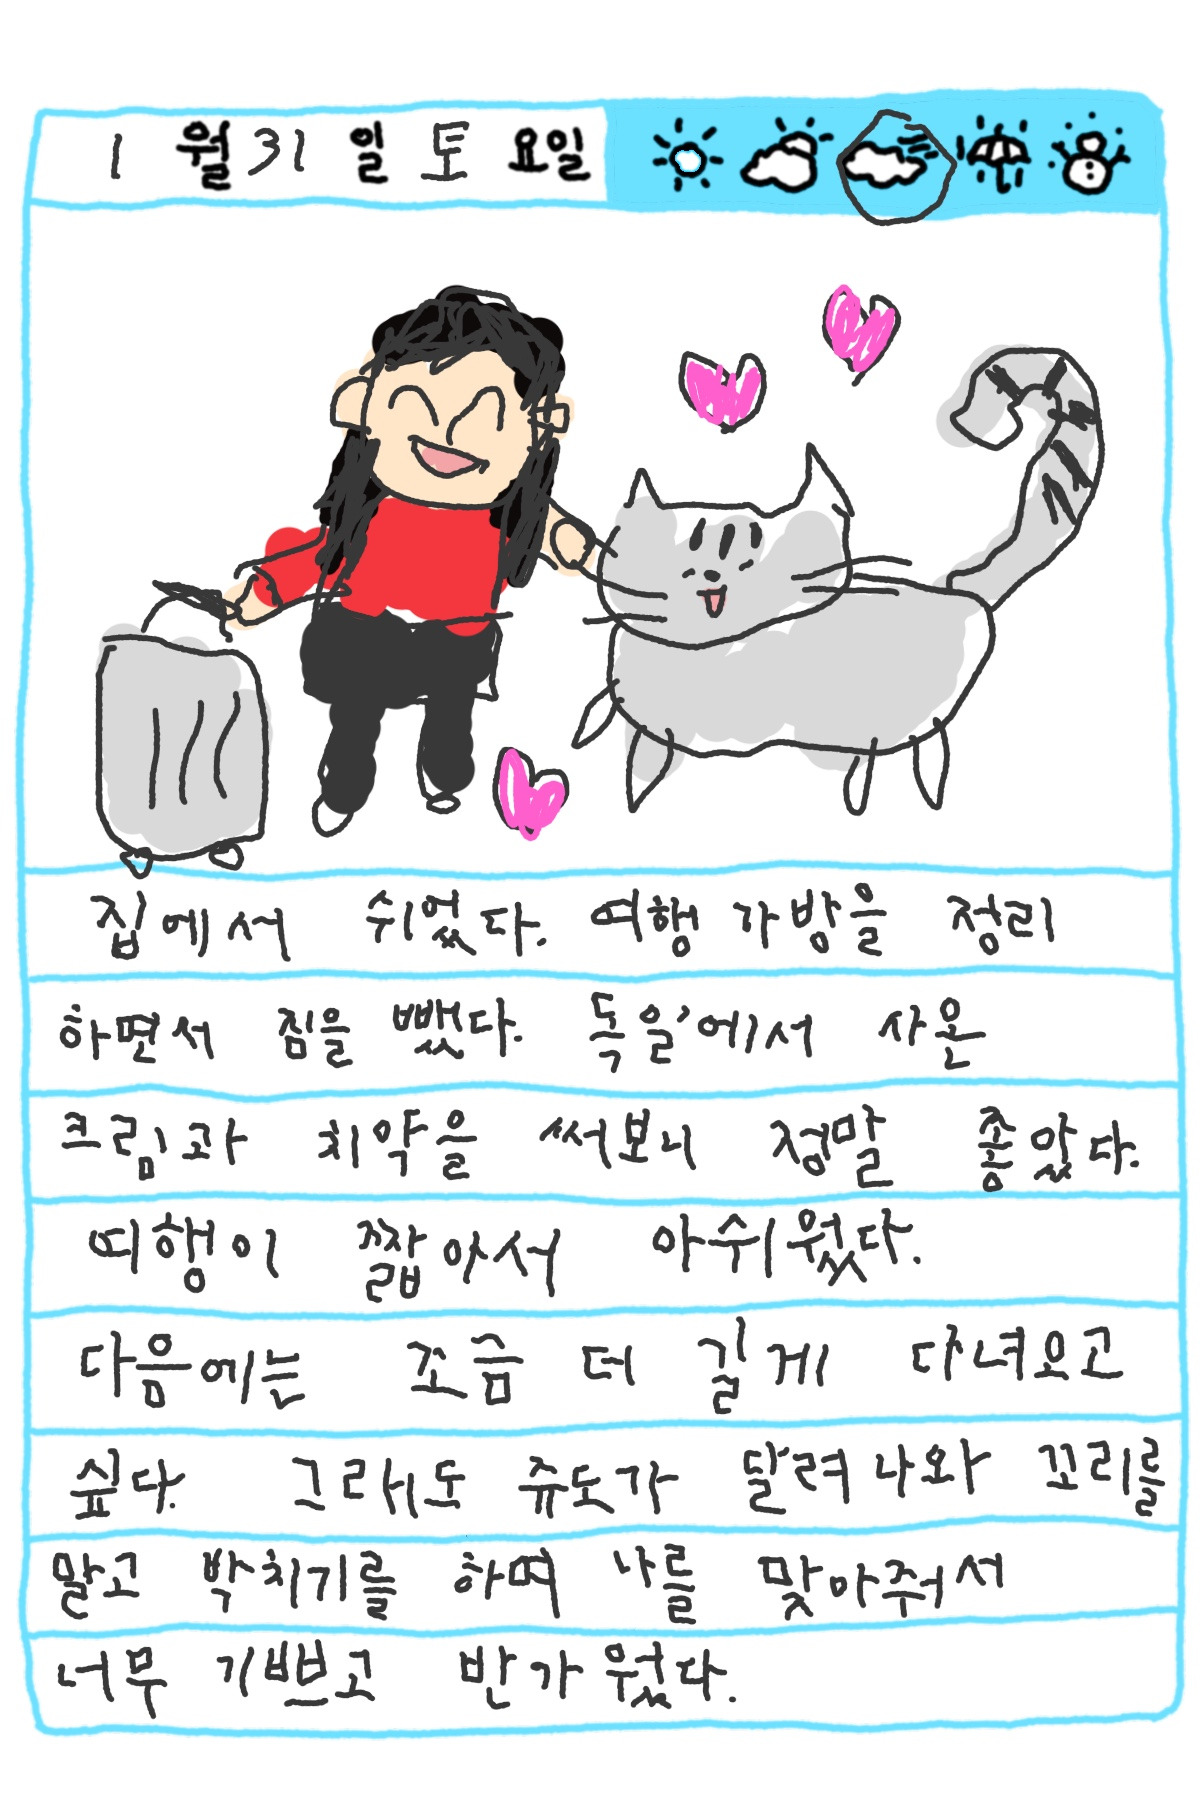 1월 31일 토요일
집에서 쉬었다. 여행 가방을 정리
하면서 짐을 뺐다. 독일에서 사온
크림과 치약을 써보니 정말 좋았다.
여행이 짧아서 아쉬웠다.
다음에는 조금 더 길게 다녀오고
싶다. 그래도 쥬도가 달려나와 꼬리를
말고 박치기를 하며 나를 맞아줘서
너무 기쁘고 반가웠다.